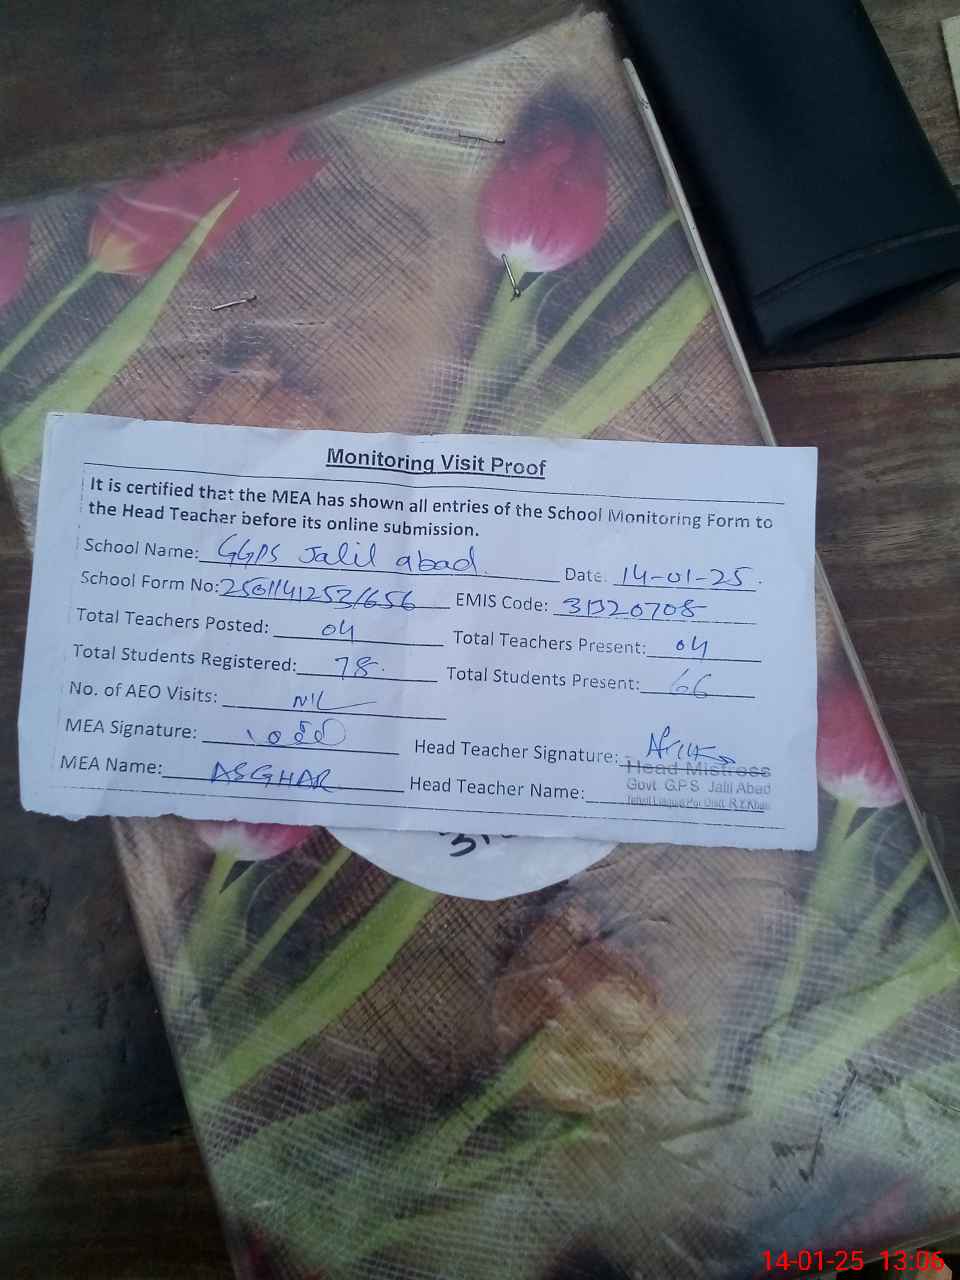 Monitoring Visit Proof
It is certified that the MEA has shown all entries of the School Monitoring Form to
the Head Teacher before its online submission.
School Name: GGPS Jalil abad. Date: 14-01-25.
School Form No: EMIS Code: 31320708
Total Teachers Posted: 04 Total Teachers Present: 04
Total Students Registered: 78. Total Students Present: 66
No. of AEO Visits: NIL
MEA Signature: Head Teacher Signature:
Head Mistress
MEA Name: ASGHAR Head Teacher Name: Govt. G.P.S Jalil Abad
14-01-25 13:06